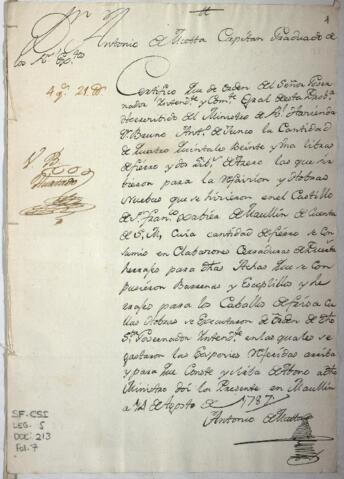 4
Dn Antonio de Mata Capitan Graduado de
los Rs Extos
4 qs 21 lbs
Certifico que de orden del Señor Gover-
nador Intendte y Comte Gral de esta Prova
he recivido del Ministro de Rl Hacienda
Dn Bruno Anto de Junco la Cantidad
de quatro quintales beinte y una libras
de fierro y dos libs de las que sir-
bieron para la y obras
Nuebas que se hicieron en el Castillo
de Sn Franco Xabier de Maullin de cuenta
de S. M, cuia cantidad de fierro se con-
sumio en Clabazones Cerraduras de Puerta
herraje para dhas Achas que se com-
pusieron Barrenas y Escoplillos y he-
rraje para los Caballos de frisa
cuias obras se executaron de orden de dho
Sor Governador Intendte en las quales se
gastaron las Especies referidas arriba
y para que Conste y sirba de Abono a dho
Ministro doi la Presente en Maullin
a de Agosto de 1787
Antonio de Mata
Vo Bo
Hurtado
SF-CSI
LEG. 5
DOC. 213
Fol. 7